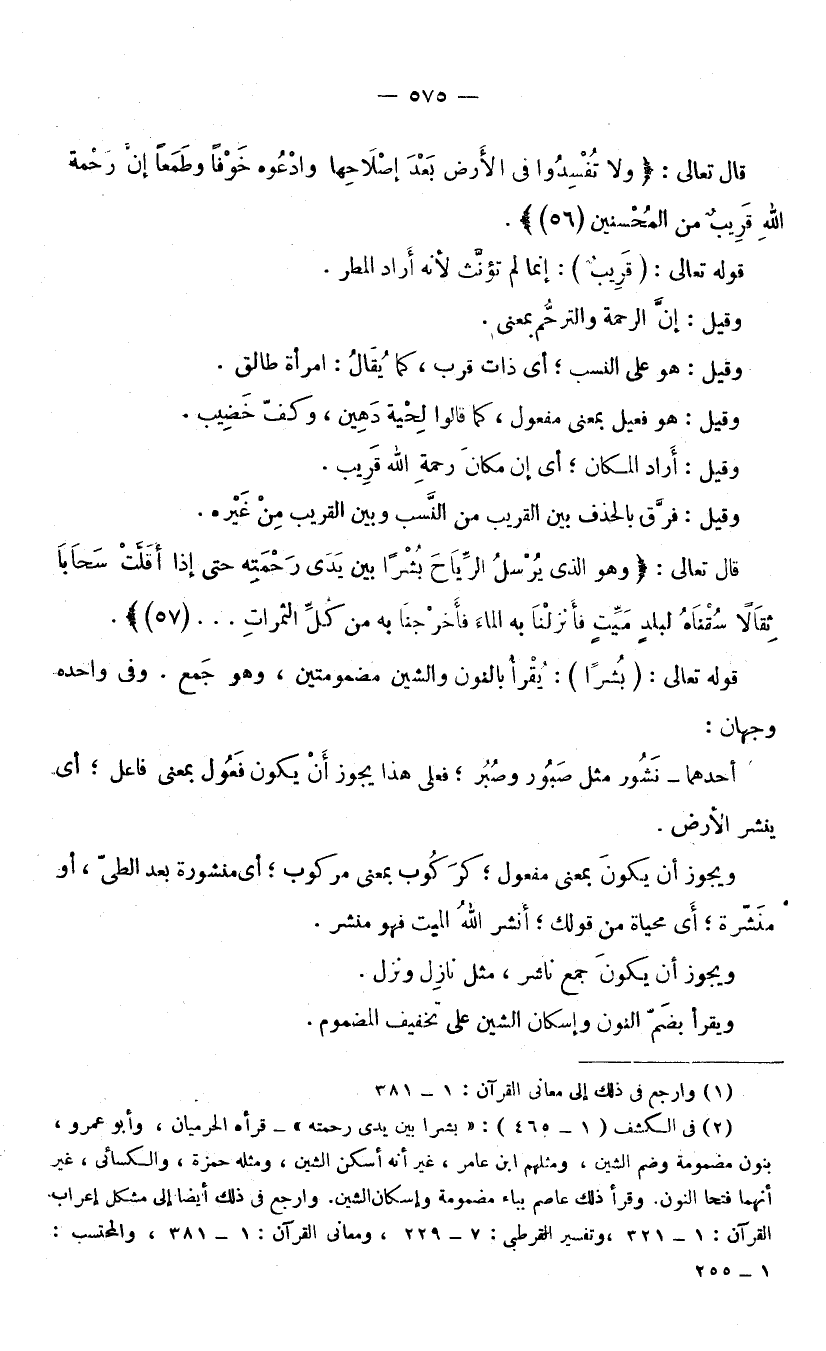 — ٥٧٥ —
قال تعالى : ﴿ ولا تُفْسِدُوا فى الأَرض بَعْدَ إصْلَاحِها وادْعُوه خَوْفاً وطَمَعاً إنّ رَحْمة
اللهِ قَرِيبٌ من المُحْسنين (٥٦) ﴾ .
قوله تعالى : ( قَرِيبٌ ) : إنما لم تؤنَّث لأنه أَراد المطر .
وقيل : إنَّ الرحمة والترحُّم بمعنى .
وقيل : هو على النسب ؛ أى ذات قرب ، كما يُقَالُ : امرأة طالق .
وقيل : هو فعيل بمعنى مفعول ، كما قالوا لِحْية دَهِين ، وكفّ خَضِيب .
وقيل : أَراد المكان ؛ أى إن مكانَ رحمةِ الله قَرِيب .
وقيل : فرَّق بالحذف بين القريب من النَّسب وبين القريب مِنْ غَيْره .
قال تعالى : ﴿ وهو الذى يُرْسلُ الرِّيَاحَ بُشْرًا بين يَدَى رَحْمَتِه حتى إذا أَقَلَّتْ سَحاَباَ
ثِقاَلًا سُقْناَهُ لبلدٍ مَيِّتٍ فأَنزلْنَا به الماءَ فأَخرجنَا به من كُلِّ الثمراتِ . . . (٥٧) ﴾ .
قوله تعالى : ( بُشرًا ) : يُقْرأُ بالنون والشين مضمومتين ، وهو جَمع . وفى واحده
وجهان :
أحدهما ــ نَشُور مثل صَبُور وصُبُر ؛ فعلى هذا يجوز أَنْ يكون فَعُول بمعنى فاعل ؛ أى
ينشر الأرض .
ويجوز أن يكونَ بمعنى مفعول ؛ كرَكُوب بمعنى مركوب ؛ أى منشورة بعد الطىّ ، أو
مُنَشّرة ؛ أَى محياة من قولك ؛ أَنشر اللهُ الميت فهو منشر .
ويجوز أن يكونَ جمع ناشر ، مثل نازِل ونزل .
ويقرأ بضَمّ النون وإسكان الشين على تخفيف المضموم .
(١) وارجع فى ذلك إلى معانى القرآن : ١ ــ ٣٨١
(٢) فى الكشف ( ١ ــ ٤٦٥ ) : « بشرا بين يدى رحمته » ــ قرأه الحرميان ، وأبو عمرو ،
بنون مضمومة وضم الشين ، ومثلهم ابن عامر ، غير أنه أسكن الشين ، ومثله حمزة ، والكسائى ، غير
أنهما فتحا النون. وقرأ ذلك عاصم بباء مضمومة وإسكان الشين. وارجع فى ذلك أيضا إلى مشكل إعراب
القرآن : ١ ــ ٣٢١ ،وتفسير القرطبى : ٧ ــ ٢٢٩ ، ومعانى القرآن : ١ ــ ٣٨١ ، والمحتسب :
١ ــ ٢٥٥